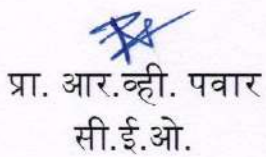 प्रा. आर.व्ही. पवार
सी.ई.ओ.